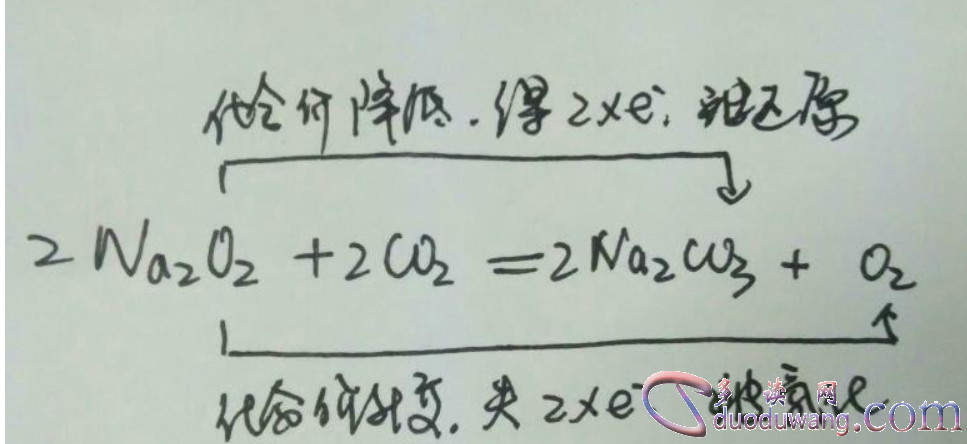 化合价降低.得2×e⁻,被还原
2Na₂O₂ + 2CO₂ = 2Na₂CO₃ + O₂
化合价 失2×e⁻ 被
多读网
duoduwang.com